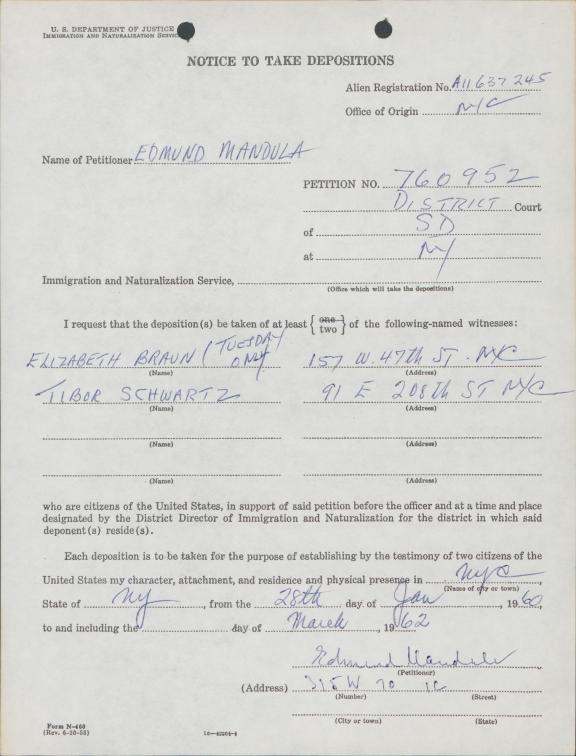 U. S. DEPARTMENT OF JUSTICE
IMMIGRATION AND NATURALIZATION SERVICE
NOTICE TO TAKE DEPOSITIONS
Alien Registration No. A11 637 245
Office of Origin NYC
Name of Petitioner EDMUND MANDULA
PETITION NO. 760952
DISTRICT Court
of SD
at NY
Immigration and Naturalization Service,
(Office which will take the depositions)
I request that the deposition(s) be taken of at least { one two } of the following-named witnesses:
ELIZABETH BRAUN (TUESDAY ONLY 157 W. 47th ST. NYC
(Name) (Address)
TIBOR SCHWARTZ 91 E 208th ST NYC
(Name) (Address)
(Name) (Address)
(Name) (Address)
who are citizens of the United States, in support of said petition before the officer and at a time and place
designated by the District Director of Immigration and Naturalization for the district in which said
deponent(s) reside(s).
Each deposition is to be taken for the purpose of establishing by the testimony of two citizens of the
United States my character, attachment, and residence and physical presence in NYC,
(Name of city or town)
State of NY, from the 28th day of Jan, 1960,
to and including the day of March, 1962
Edmund Mandula
(Petitioner)
(Address) 315 W 70 1C
(Number) (Street)
(City or town) (State)
Form N-460
(Rev. 6-20-58)